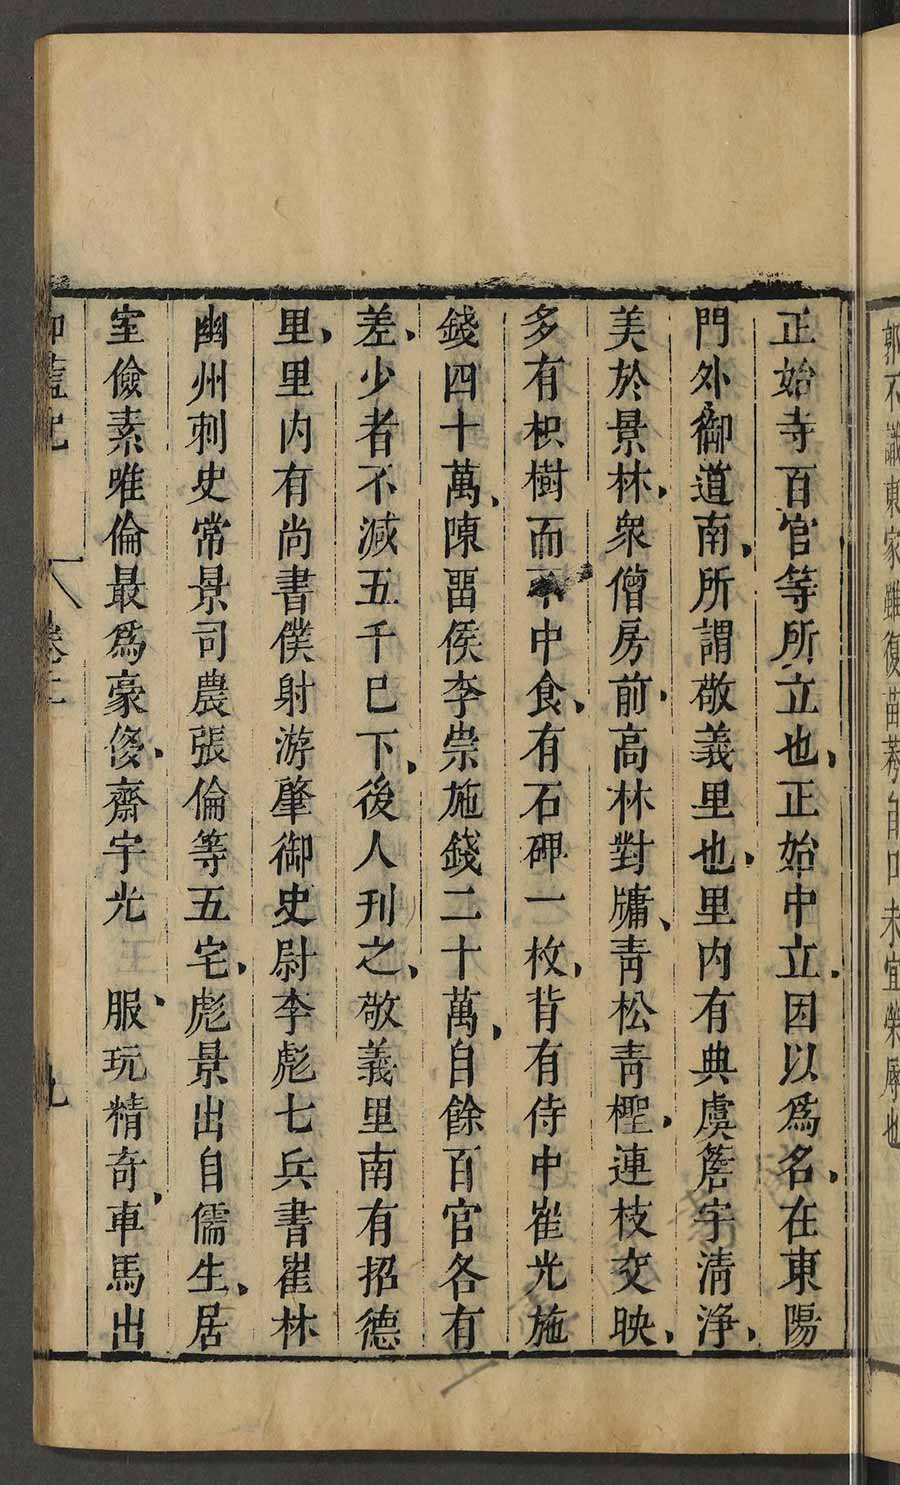 郭不識東家雖復莤蓩自口未宜榮辱也
正始寺百官等所立也正始中立因以爲名在東陽
門外御道南所謂敬義里也里内有典虞簷宇清淨
美於景林衆僧房前高林對牖青松青檉連枝交映
多有枳樹而不中食有石碑一枚背有侍中崔光施
錢四十萬陳畱侯李崇施錢二十萬自餘百官各有
差少者不減五千巳下後人刋之敬義里南有招德
里里内有尚書僕射游肇御史尉李彪七兵書崔林
幽州刺史常景司農張倫等五宅彪景出自儒生居
室儉素唯倫最爲豪侈齋宇光 服玩精奇車馬出
伽藍記 卷二 九